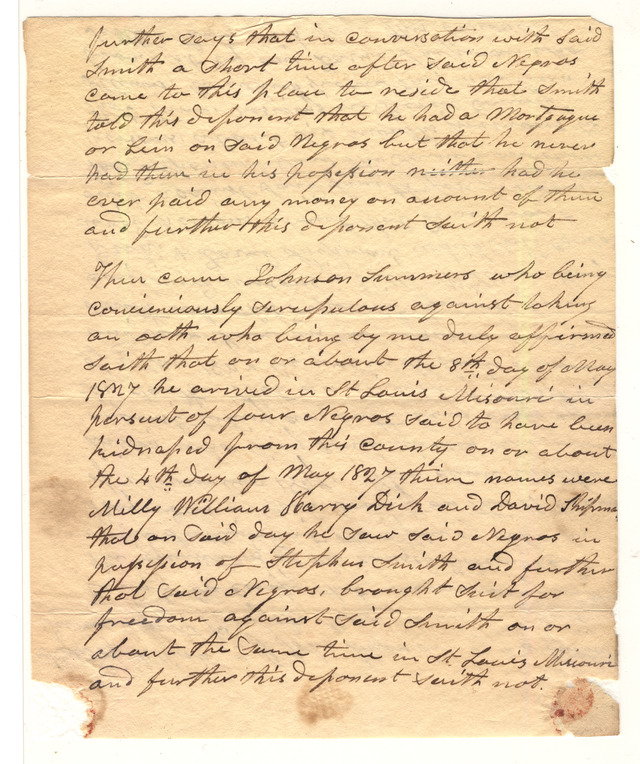 further says that in conversation with said
Smith a short time after said Negros
came to this place to reside that Smith
told this deponent that he had a Mortgague
or Lein on said Negros but that he never
had them in his possesion neither had he
ever paid any money on acount of them
and further this deponent saith not
Then came Johnson Summers who being
concienciously scrupulous against taking
an oath who being by me duly affirmed
saith that on or about the 8th day of May
1827 he arived in St Louis Misouri in
persuit of four Negros said to have been
kidnaped from this county on or about
the 4th day of May 1827 their names were
Milly William Harry Dick and David
that on said day he saw said Negros in
possesion of Stephen Smith and further
that said Negros, brought suit for
freedom against said Smith on or
about the same time in St. Louis Misouri
and further this deponent saith not.